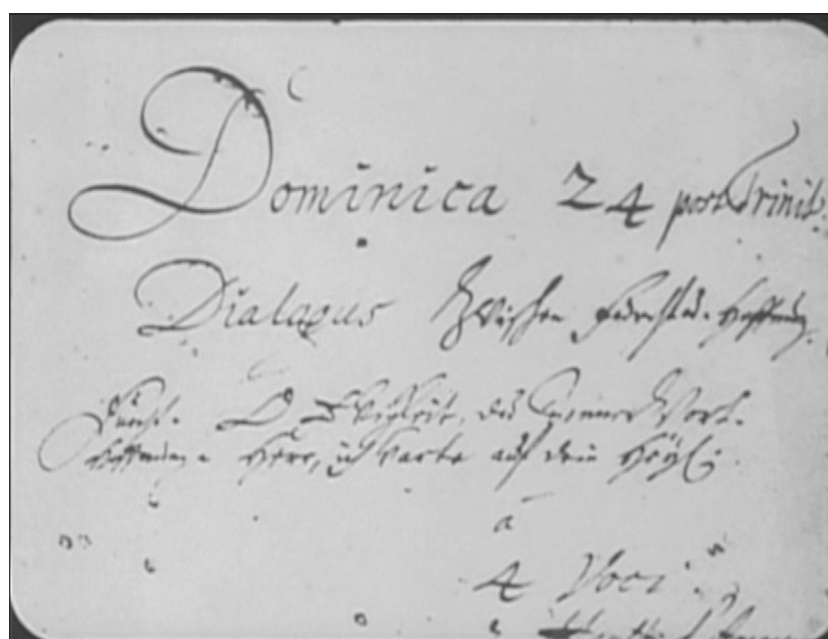 Dominica 24 post Trinit:
Dialogus Zwischen Furcht u. Hoffnung.
Furcht. O Ewigkeit, du DonnerWort.
Hoffnung. Herr, ich warte auf dein Heyl.
a
4 Voci.